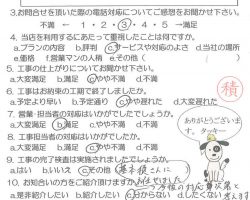 3.お問合せを頂いた際の電話対応についてご感想をお聞かせ下さい。
不満 ← 1・2・3・4・5 →満足
4.当店を利用するにあたって重視したことは何ですか。
a.プランの内容 b.評判 c.サービスや対応のよさ d.当社の場所
e.価格 f.営業マンの人柄 g.その他（
5.工事の仕上がりについてお聞かせ下さい。
a.大変満足 b.満足 c.やや満足 d.不満
6.工事はお約束の工期で終了しましたか。
a.予定より早い b.予定通り c.やや遅れた d.大変遅れた
7.営業・担当者の対応はいかがでしたか。
a.大変満足 b.満足 c.やや満足 d.不満
8.工事担当者の対応はいかがでしたか。
a.大変満足 b.満足 c.やや満足 d.不満
9.工事の完了検査は実施されましたでしょうか。
a.はい b.いいえ c.その他（
10.お知合いの方をご紹介頂けますか
a.是非紹介したい b.紹介したい c.わからない d.したくない
積
ありがとうございます。
タッキー